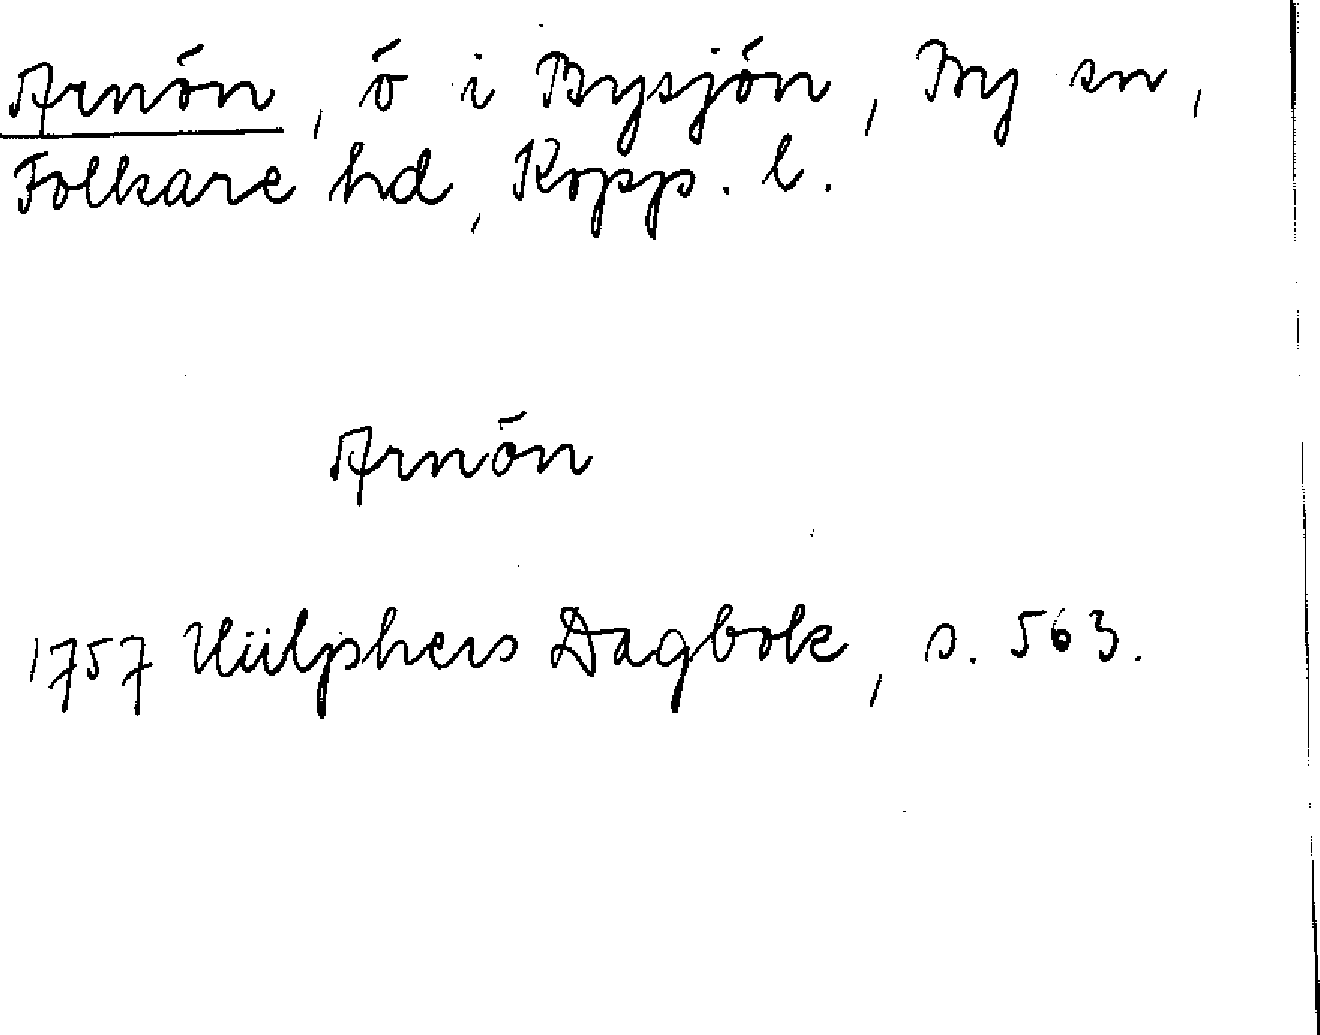 Arnön, ö i Bysjön, By sn,
Folkare hd, Kopp. l.
Arnön
1757 Hülphers Dagbok, s. 563.